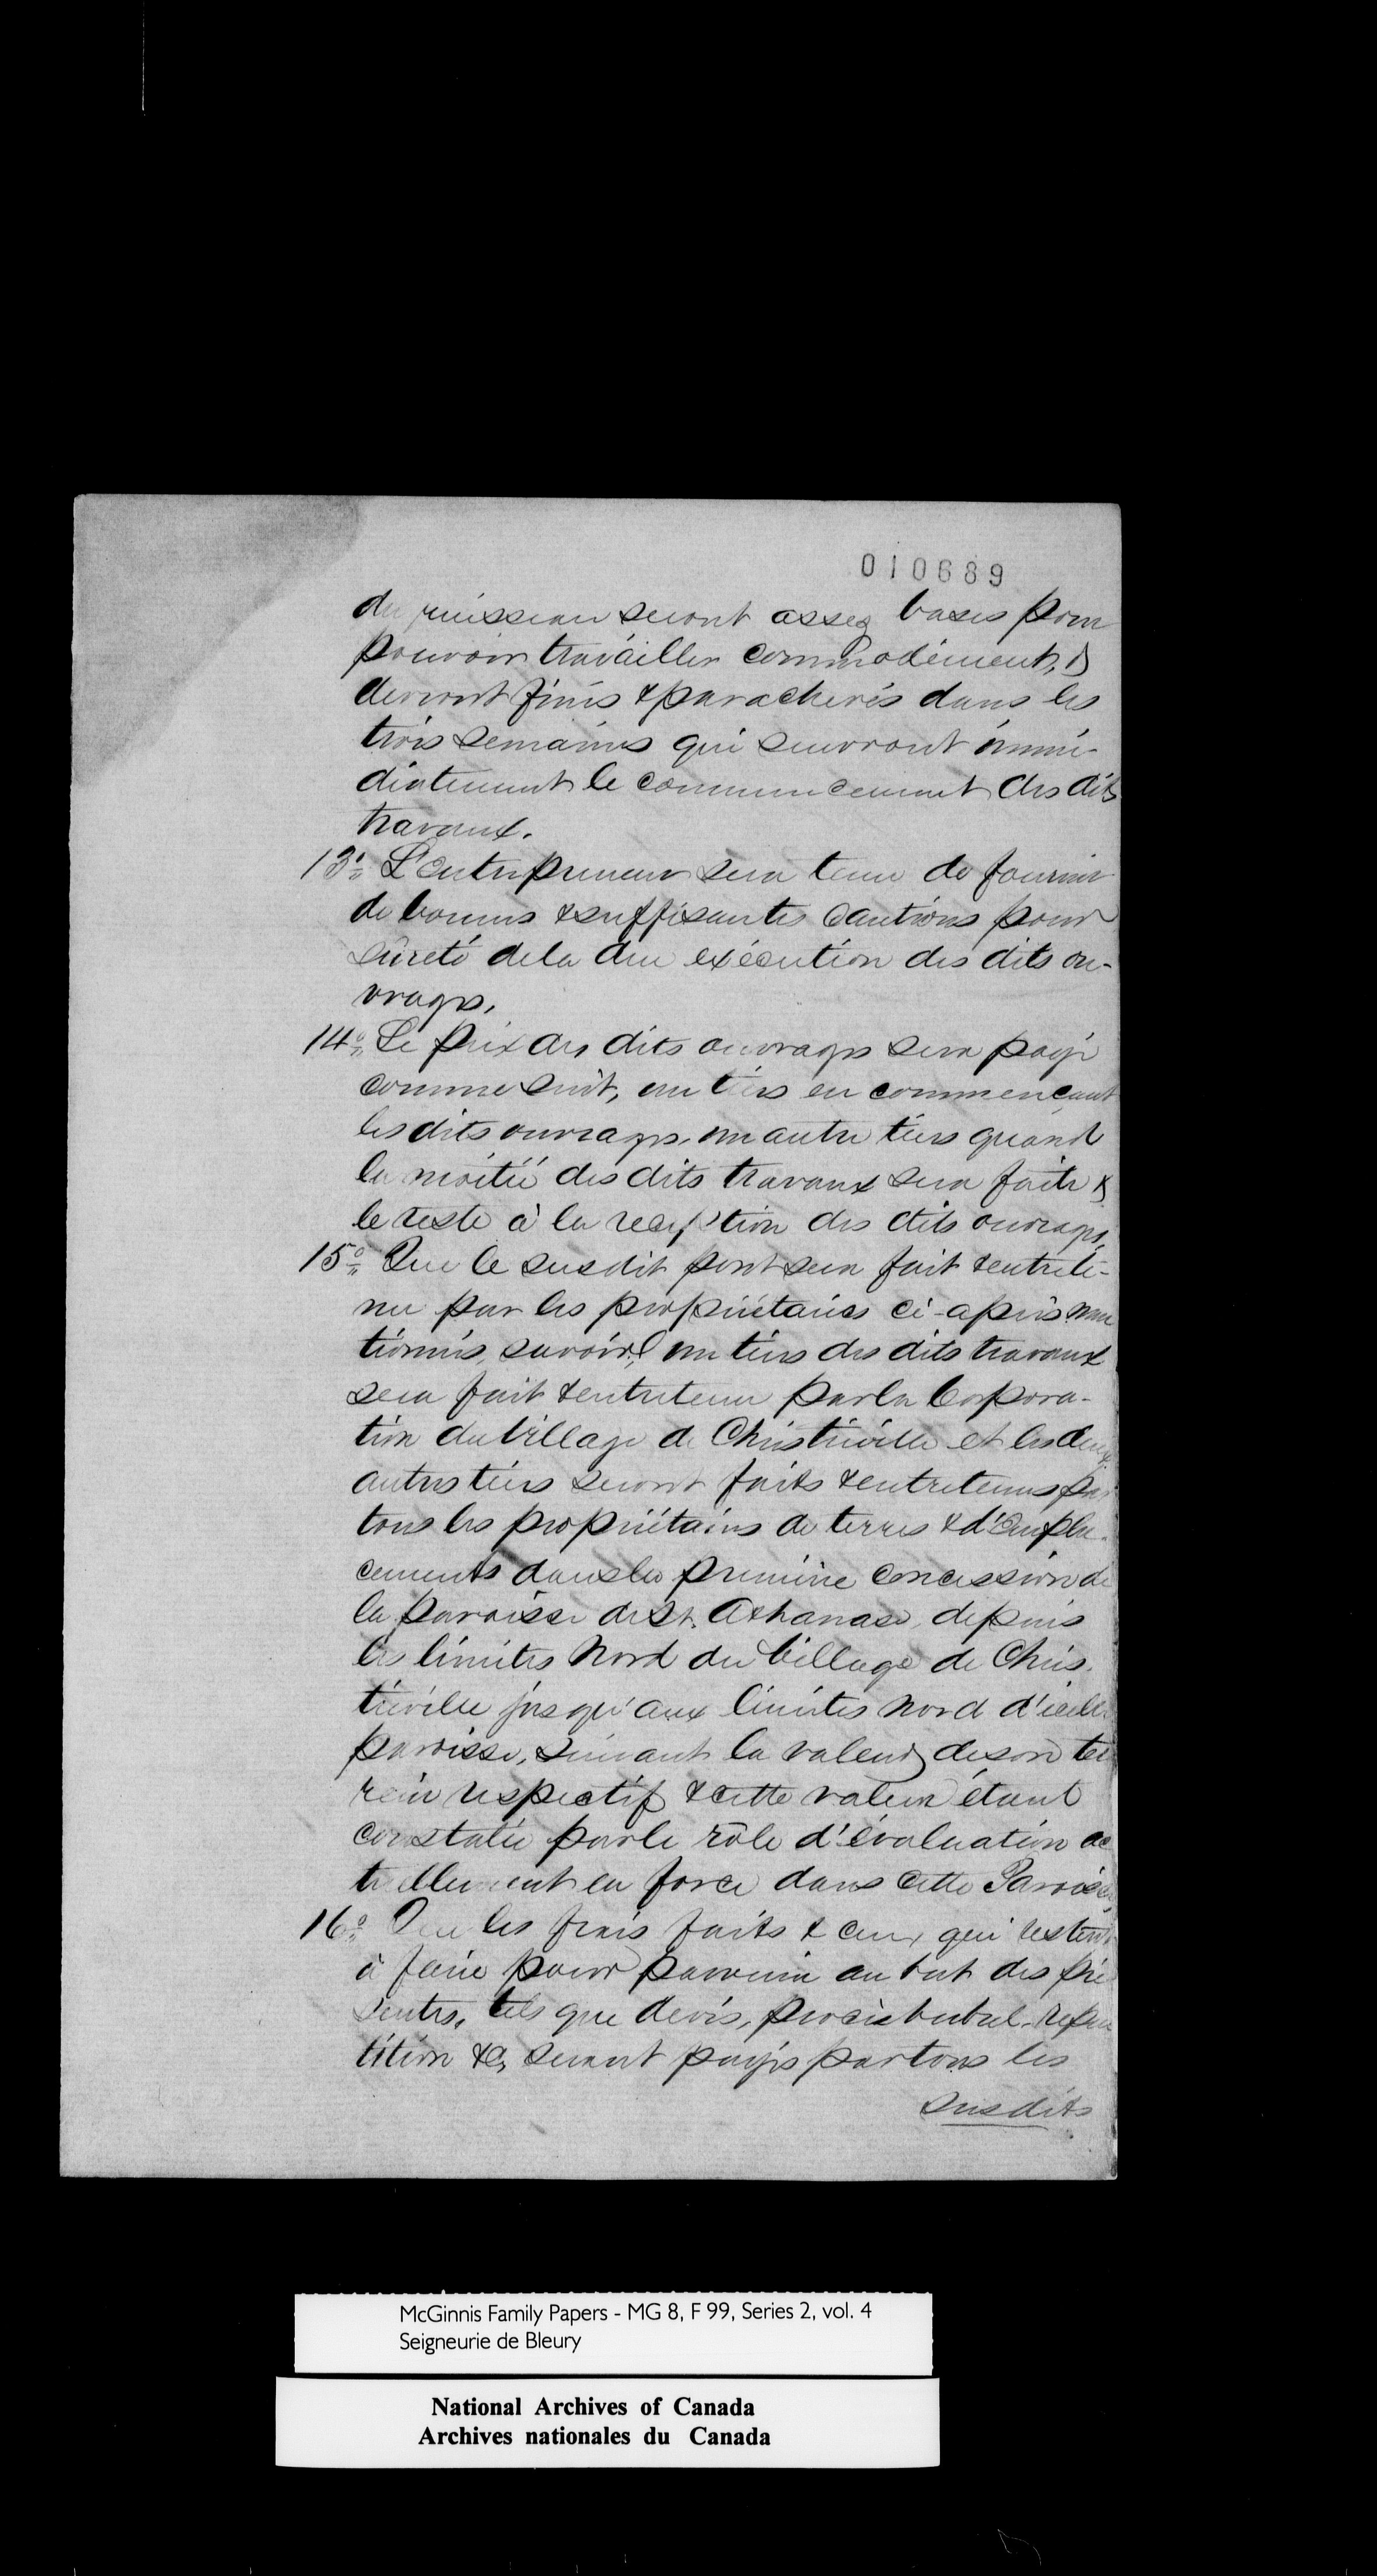 010689
du ruisseau seront assez basses pour
pouvoir travailler commodément, &
devront finis & parachevés dans les
trois semaines qui suivront immé-
diatement le commencement des dits
travaux.
13o L'entrepreneur sera tenu de fournir
de bonnes & suffisantes cautions pour
sûreté de la due exécution des dits ou-
vrages.
14o Le prix des dits ouvrages sera payé
comme suit, un tiers en commençant
les dits ouvrages, un autre tiers quand
la moitié des dits travaux sera faite &
le reste à la reception des dits ouvrages.
15o Que le susdit pont sera fait & entrete-
nu par les propriétaires ci-après men
tionnés, savoir, un tiers des dits travaux
sera fait & entretenu par la Corpora-
tion du Village de Christieville et les deux
autres tiers seront faits & entretenus par
tous les propriétaires de terres & d'empla-
cements dans la première concession de
la paroisse de St. Athanase, depuis
les limites Nord du Village de Chris-
tieville jusqu'aux limites nord d'icelle
paroisse, suivant la valeur de son ter
rein respectif & cette valeur étant
constatée par le rôle d'évaluation ac
tuellement en force dans cette Paroisse
16o Que les frais faits & ceux qui restent
à faire pour parvenir au but des pré
sentes, tels que devis, procès verbal, répar
tition &c, seront payés par tous les
susdits
McGinnis Family Papers - MG 8, F 99, Series 2, vol. 4
Seigneurie de Bleury
National Archives of Canada
Archives nationales du Canada